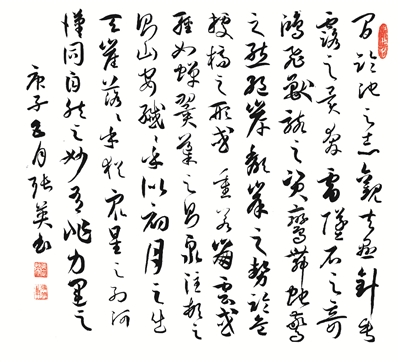 間臨池之志觀夫懸針垂
露之異奔雷墜石之奇
鴻飛獸駭之資鸞舞蛇驚
之態絕岸頹峰之勢臨危
據槁之形或重若崩雲或
輕如蟬翼導之則泉注頓之
則山安纖纖乎似初月之出
天崖落落乎猶衆星之列河
漢同自然之妙有非力運之
庚子月張英書